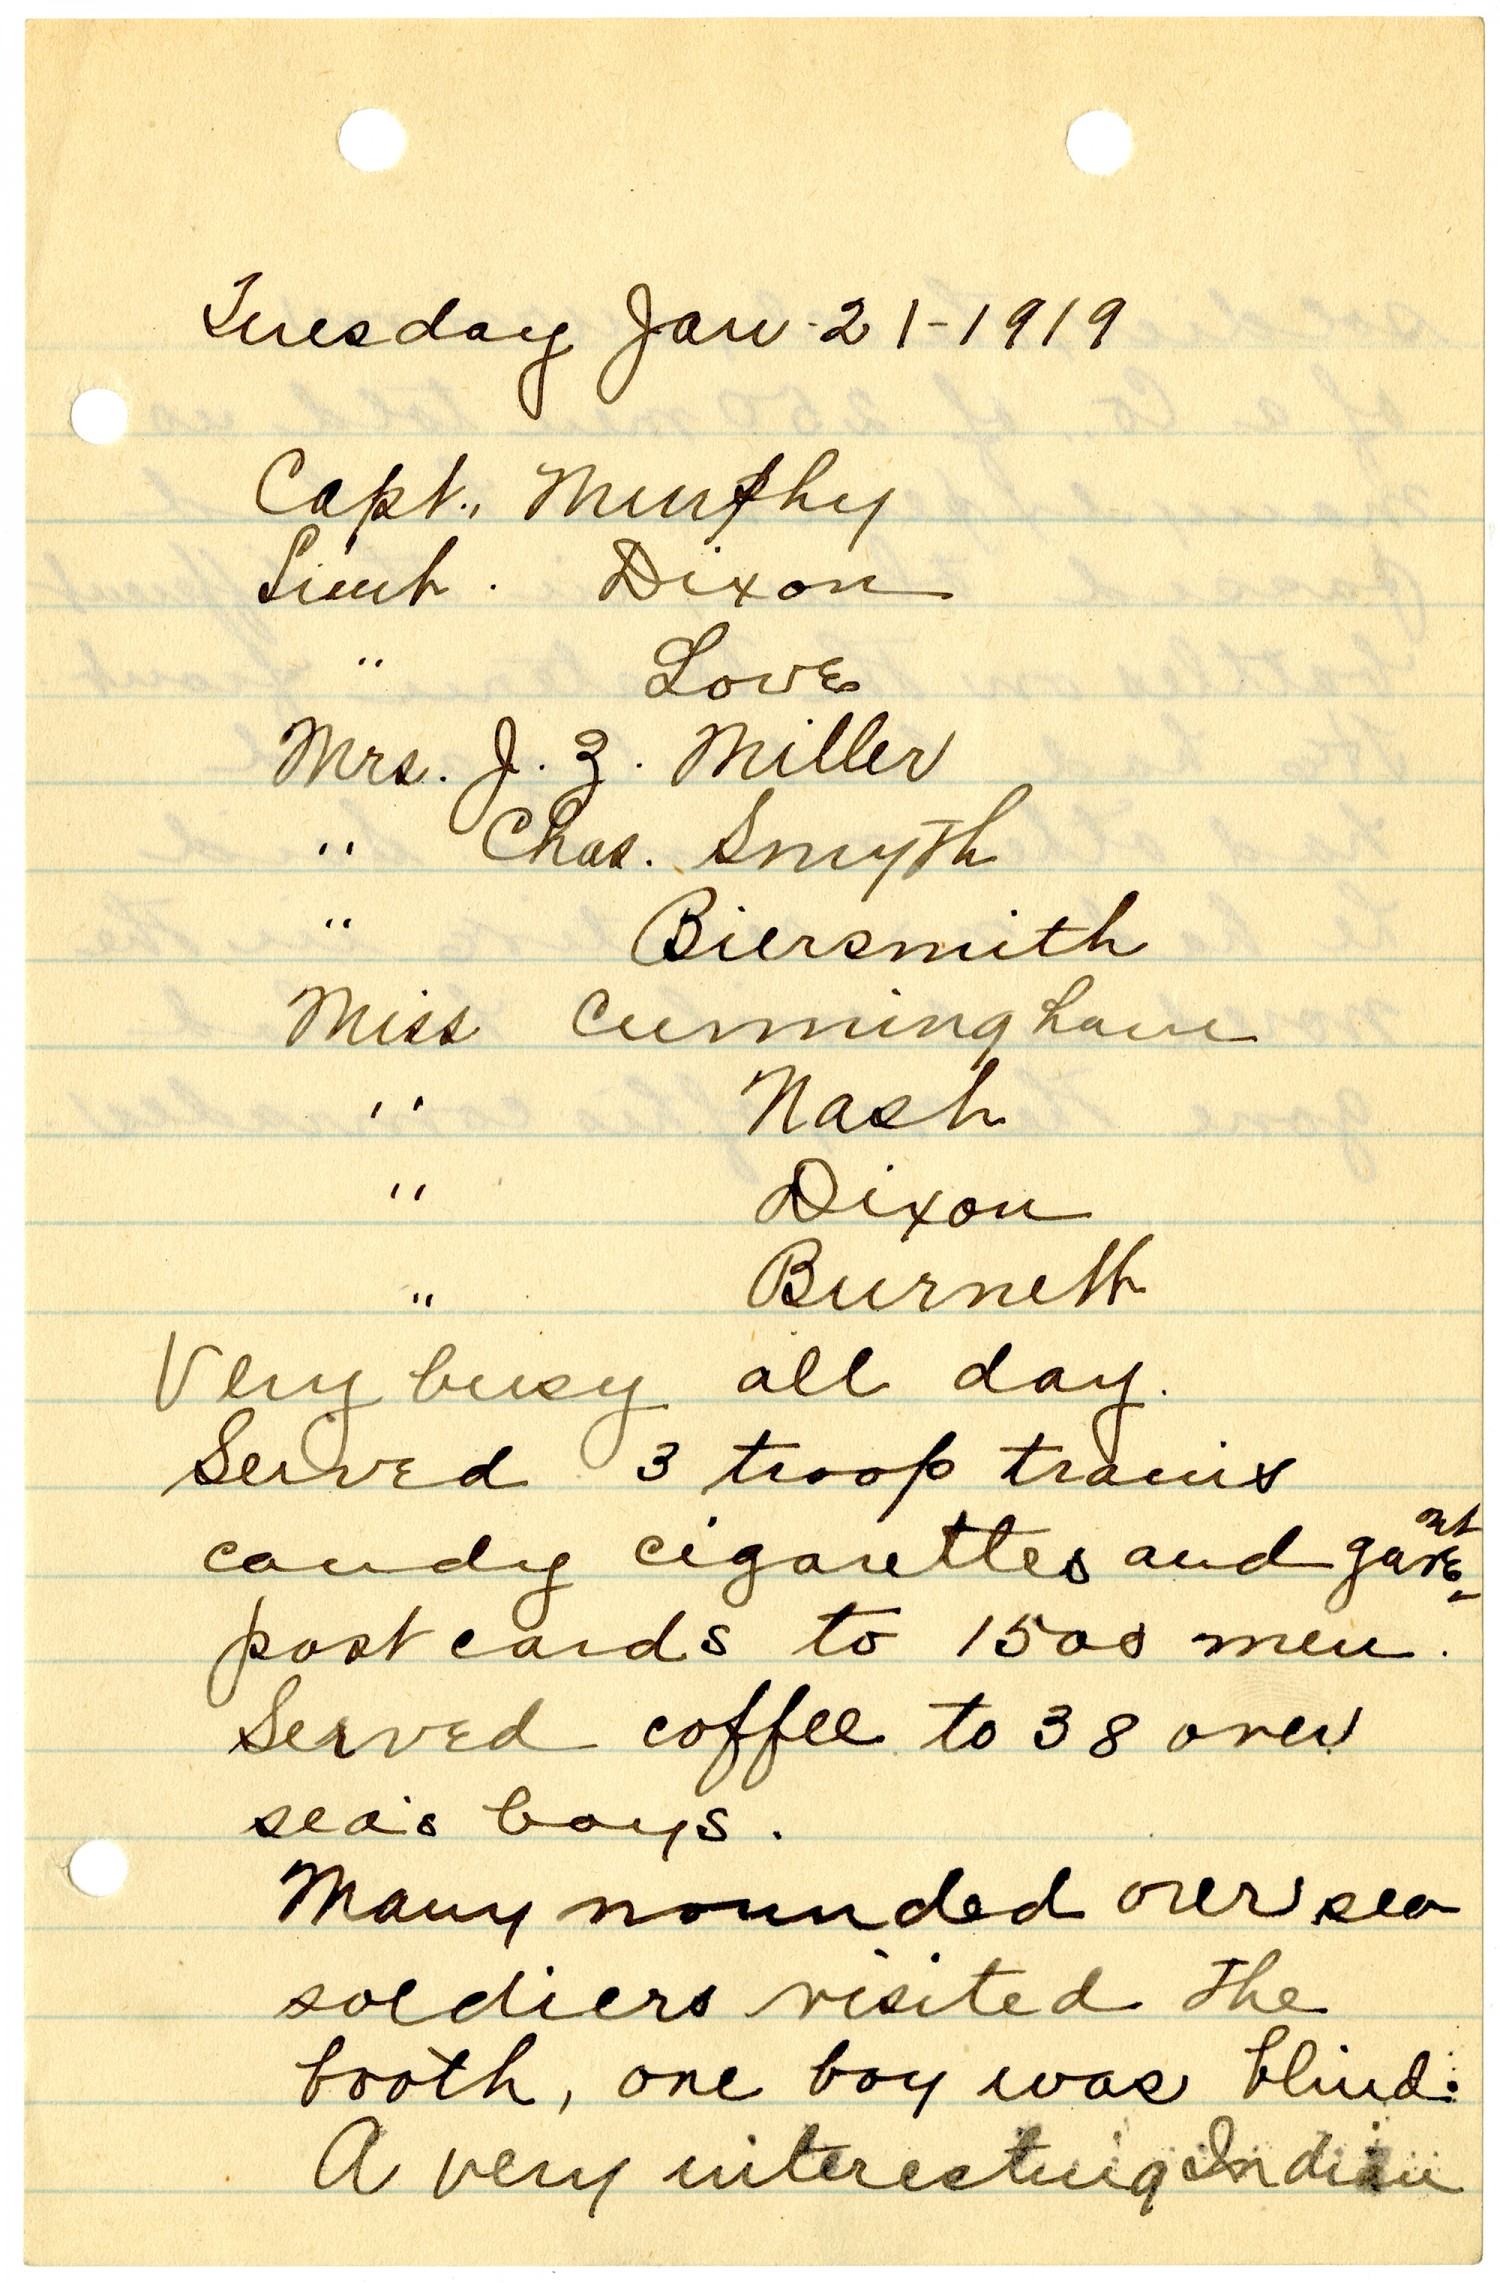 Tuesday Jan-21-1919
Capt., Murphy
Lieut. Dixon
" Love
Mrs. J. Z. Miller
" Chas. Smyth
" Biersmith
Miss Cunningham
" Nash
" Dixon
" Burnett
Very busy all day.
Served 3 troop trains
candy cigarettes and gave
post cards to 1500 men.
Served coffee to 38 over
sea's boys.
Many wounded over sea
soldiers visited the
booth, one boy was blind.
A very interesting Indian